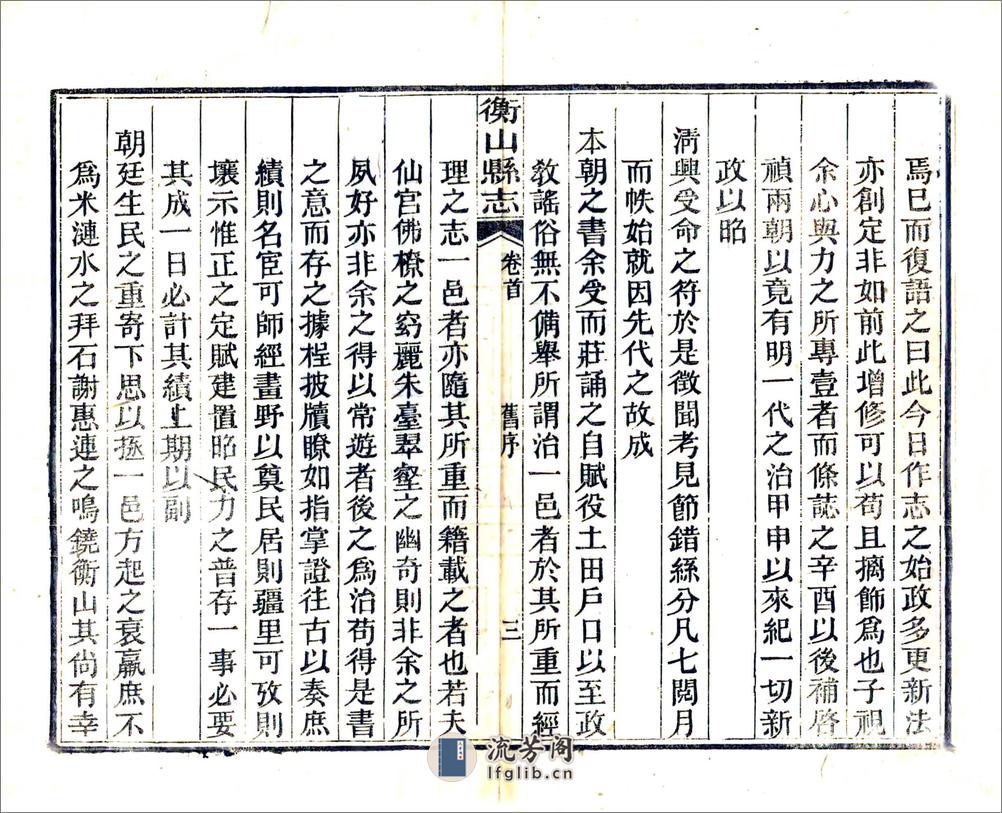 焉已而復語之曰此今日作志之始政多更新法
亦創定非如前此增修可以苟且摛飾爲也子視
余心與力之所專壹者而條誌之辛酉以後補啓
禎兩朝以竟有明一代之治甲申以來紀一切新
政以昭
淸興受命之符於是徵聞考見節錯絲分凡七閱月
而帙始就因先代之故成
本朝之書余受而莊誦之自賦役土田戶口以至政
敎謠俗無不備舉所謂治一邑者於其所重而經
衡山縣志
卷首
舊序
三
理之志一邑者亦隨其所重而籍載之者也若夫
仙官佛橑之窈麗朱臺翠壑之幽奇則非余之所
夙好亦非余之得以常遊者後之爲治苟得是書
之意而存之據桯披牘瞭如指掌證往古以奏庶
績則名宦可師經畫野以奠民居則疆里可攷則
壤示惟正之定賦建置昭民力之普存一事必要
其成一日必計其績上期以副
朝廷生民之重寄下思以拯一邑方起之衰羸庶不
爲米漣水之拜石謝惠連之鳴鐃衡山其尙有幸
流芳阁
lfglib.cn